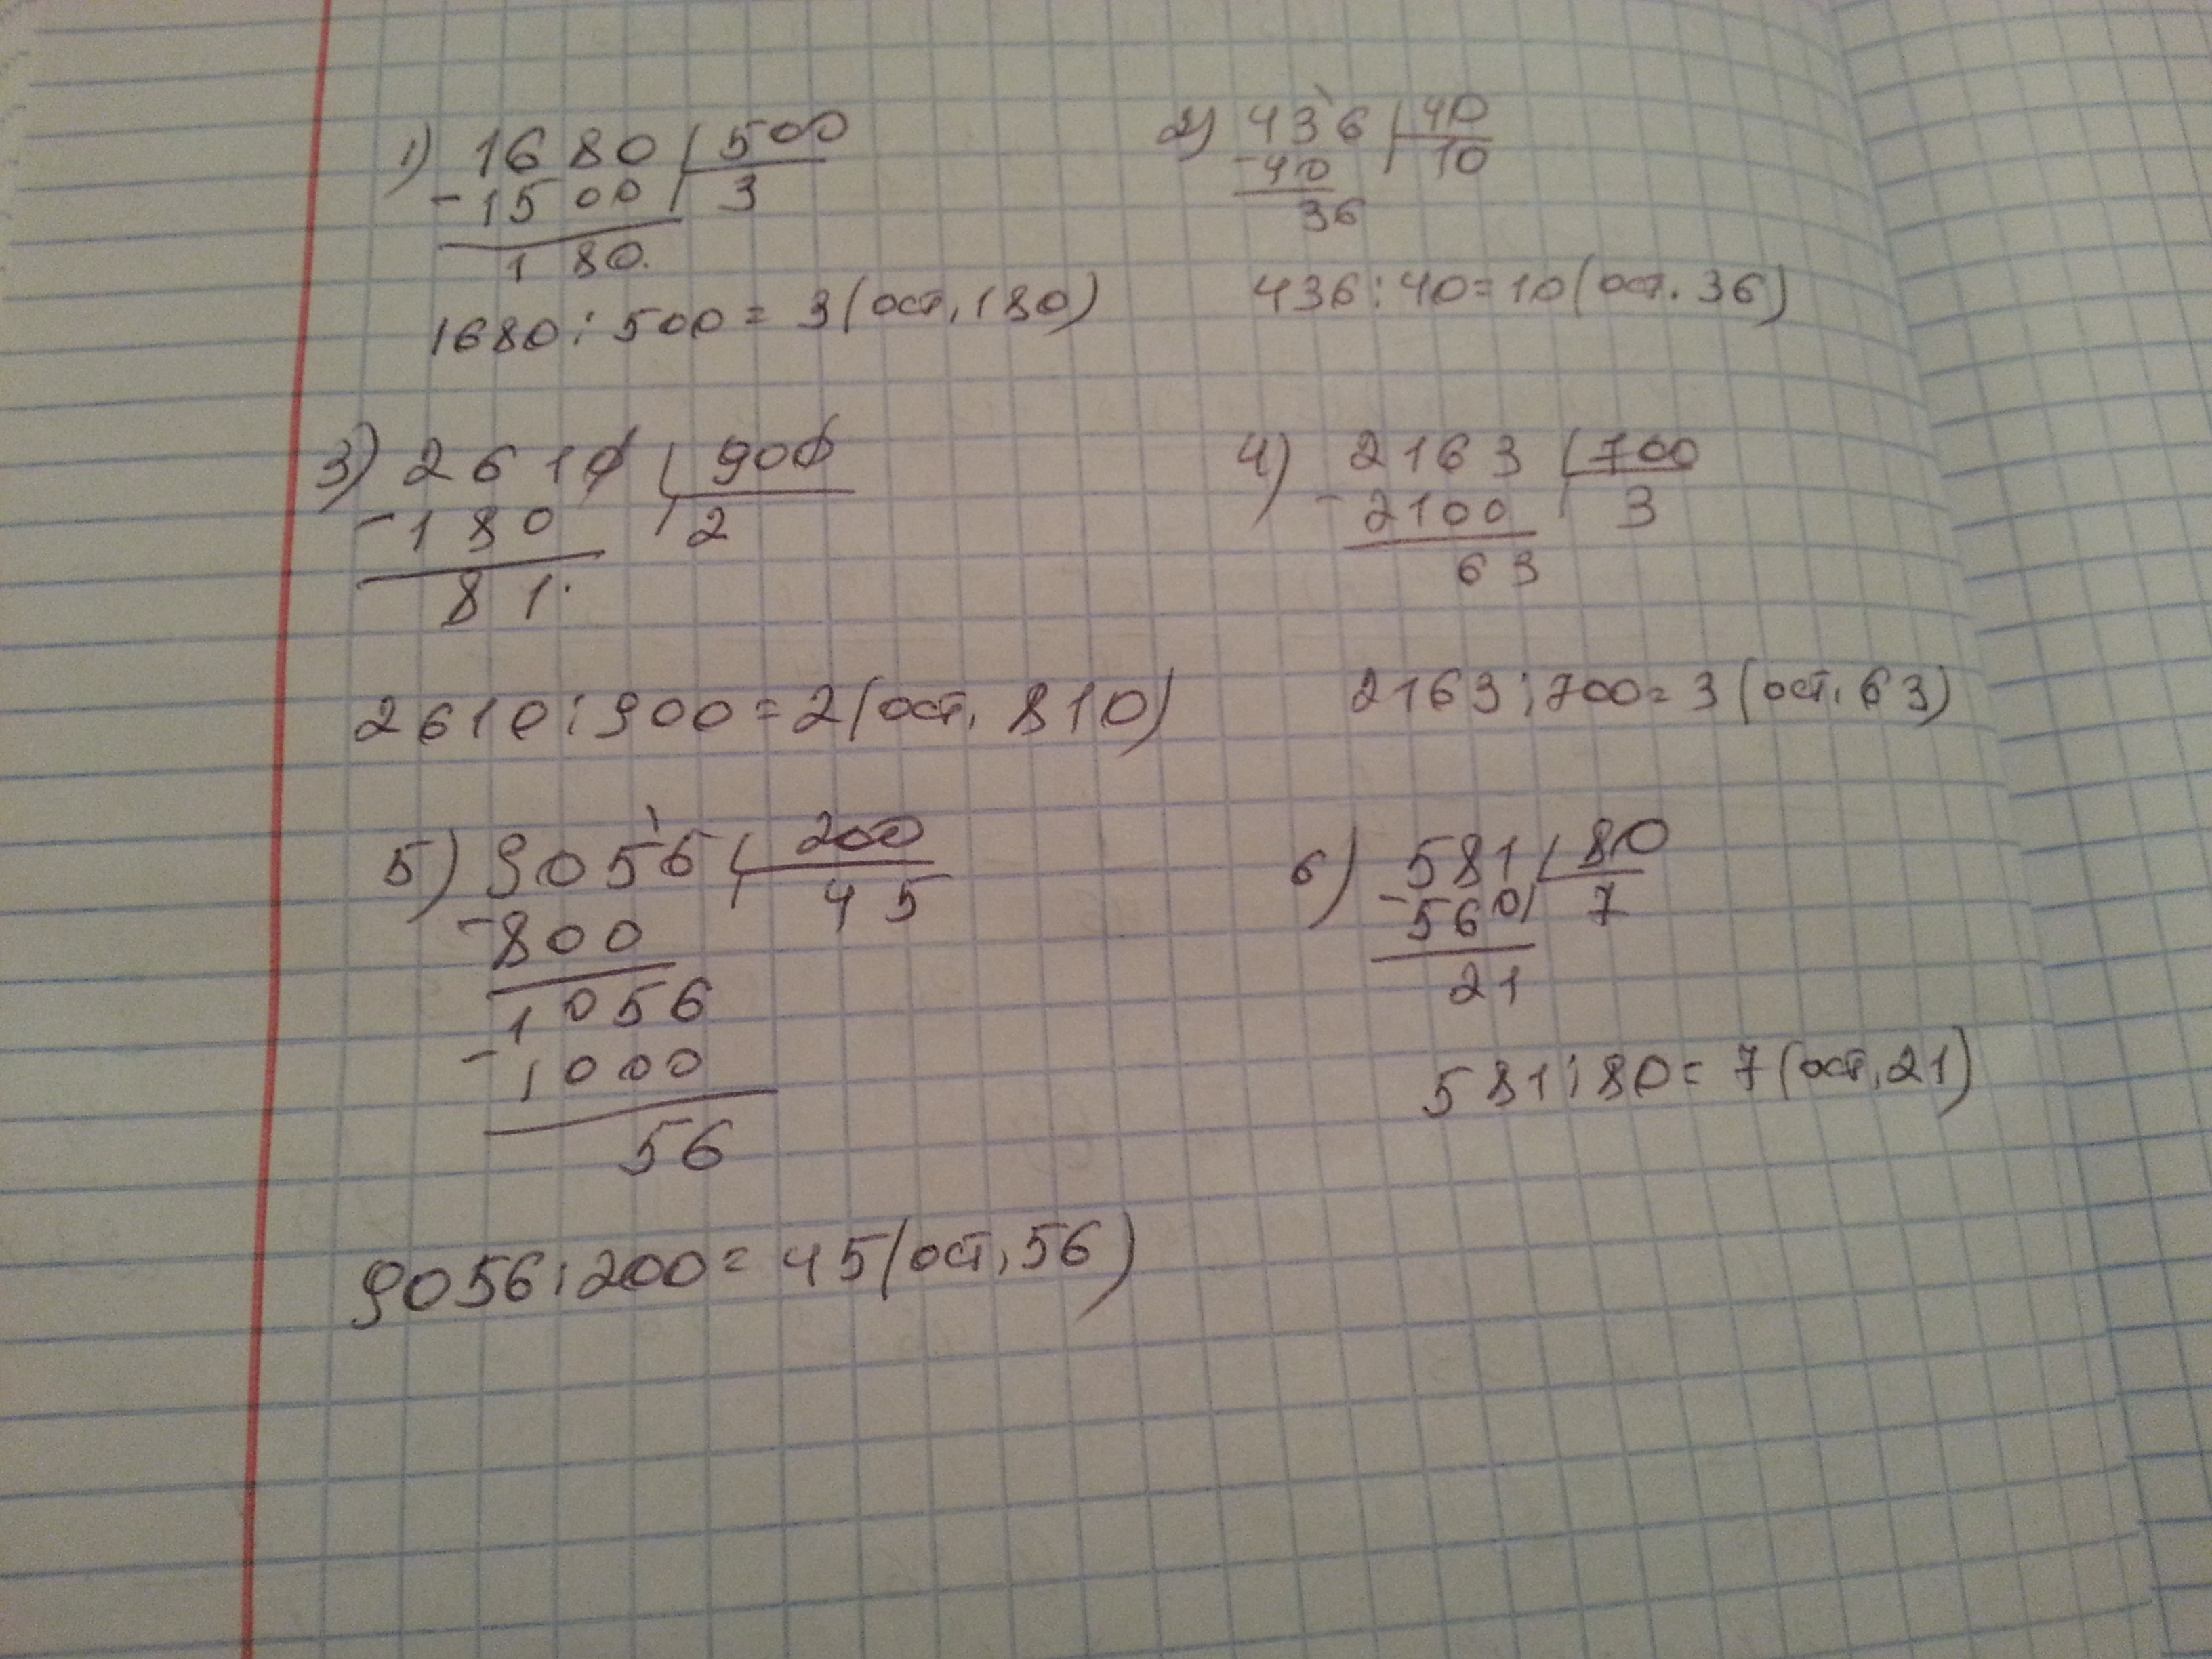 1) 1680 500
- 1500 3
180.
1680 : 500 = 3 (ост, 180)
2) 436 40
- 40 10
36
436 : 40 = 10 (ост. 36)
3) 2610 900
- 180 2
81.
2610 : 900 = 2 (ост, 810)
4) 2163 700
- 2100 3
63
2163 : 700 = 3 (ост, 63)
5) 9056 200
- 800 45
1056
- 1000
56
9056 : 200 = 45 (ост, 56)
6) 581 80
- 560 7
21
581 : 80 = 7 (ост, 21)